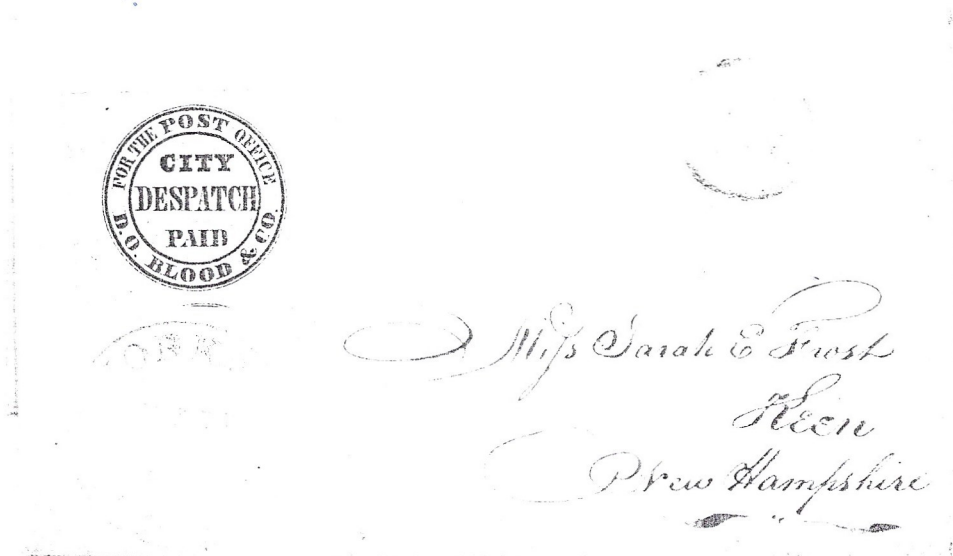 FOR THE POST OFFICE
CITY
DESPATCH
PAID
D.O. BLOOD & CO.
Miss Sarah E Frost
Keen
New Hampshire